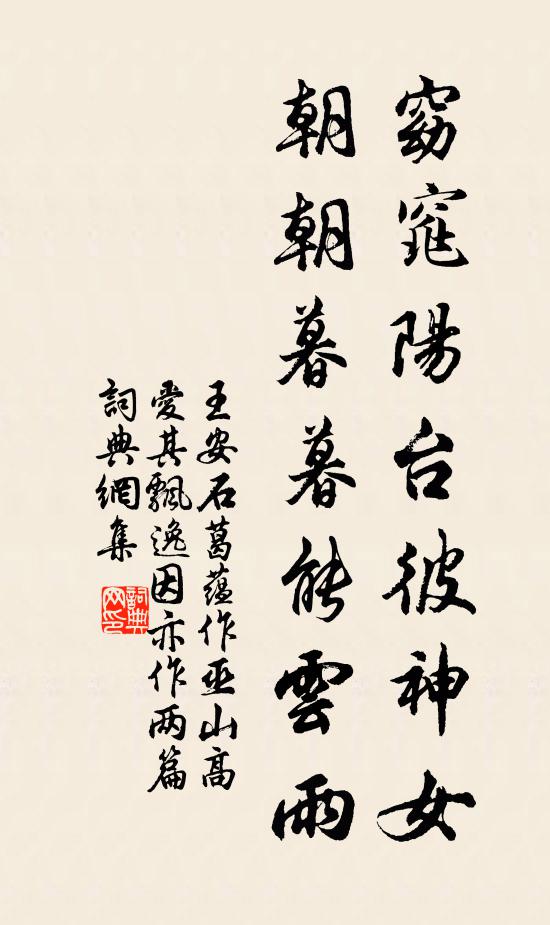 窈窕陽台彼神女
朝朝暮暮能雲雨
王安石葛蘊作巫山高
愛其飄逸因亦作两篇
詞典網集
詞典网印